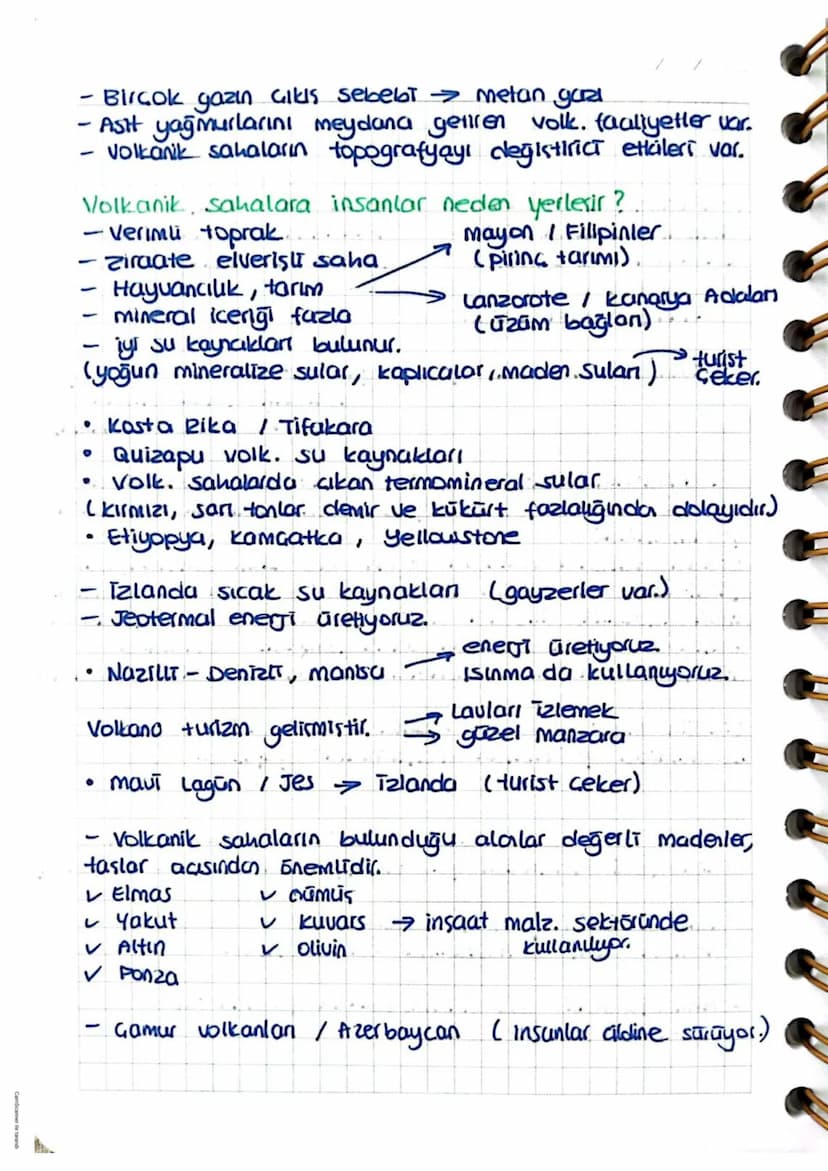 - Birçok gazın çıkış sebebi → Metan gazı
- Asit yağmurlarını meydana getiren volk. faaliyetler var.
- Volkanik sahaların topografyayı değiştirici etkileri var.
Volkanik sahalara insanlar neden yerleşir?
- Verimli toprak
- ziraate elverişli saha
- Hayvancılık, tarım
Mayon / Filipinler
(pirinç tarımı)
Lanzorote / Kanarya Adaları
(üzüm bağları)
- mineral içeriği fazla
- iyi su kaynakları bulunur.
(yoğun mineralize sular, kaplıcalar, maden suları) → turist çeker.
• Kosta Rika / Tifukara
• Quizapu volk. su kaynakları
• Volk. sahalarda çıkan termomineral sular
(kırmızı, sarı tonlar demir ve kükürt fazlalığından dolayıdır.)
• Etiyopya, Kamçatka, Yellowstone
- İzlanda sıcak su kaynakları (gayzerler var.)
- Jeotermal enerji üretiyoruz.
• Nazilli - Denizli, manisa → enerji üretiyoruz.
ısınma da kullanıyoruz.
Volkano turizm gelişmiştir. → Lavları izlemek
→ güzel manzara
• mavi Lagün / Jes → İzlanda (turist çeker)
- Volkanik sahaların bulunduğu alanlar değerli madenler,
taşlar açısından önemlidir.
✓ Elmas ✓ Gümüş
✓ Yakut ✓ Kuvars → inşaat malz. sektöründe
✓ Altın ✓ Olivin kullanılıyor.
✓ Ponza
- Çamur volkanları / Azerbaycan (insanlar cildine sürüyor.)
CamScanner ile tarandı